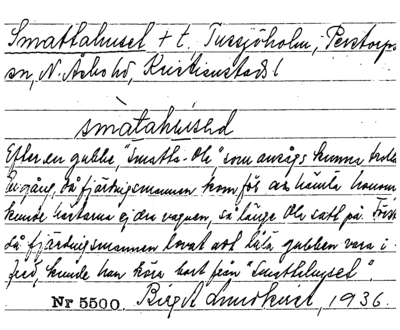 Smattahuset + t. Tussjöholm, Perstorps
sn, N. Åsbo hd, Kristianstads l
smàtahùsed
Efter en gubbe, "Smatta-Ola" som ansågs kunna trolla
En gång, då fjärdingsmannen kom för att hämta honom
kunde hästarna ej dra vagnen, så länge Ola satt på. Först
då fjärdingsmannen lovat att låta gubben vara i
fred, kunde han köra bort från "Smattehuset".
Nr 5500. Birgit Lundkvist, 1936.